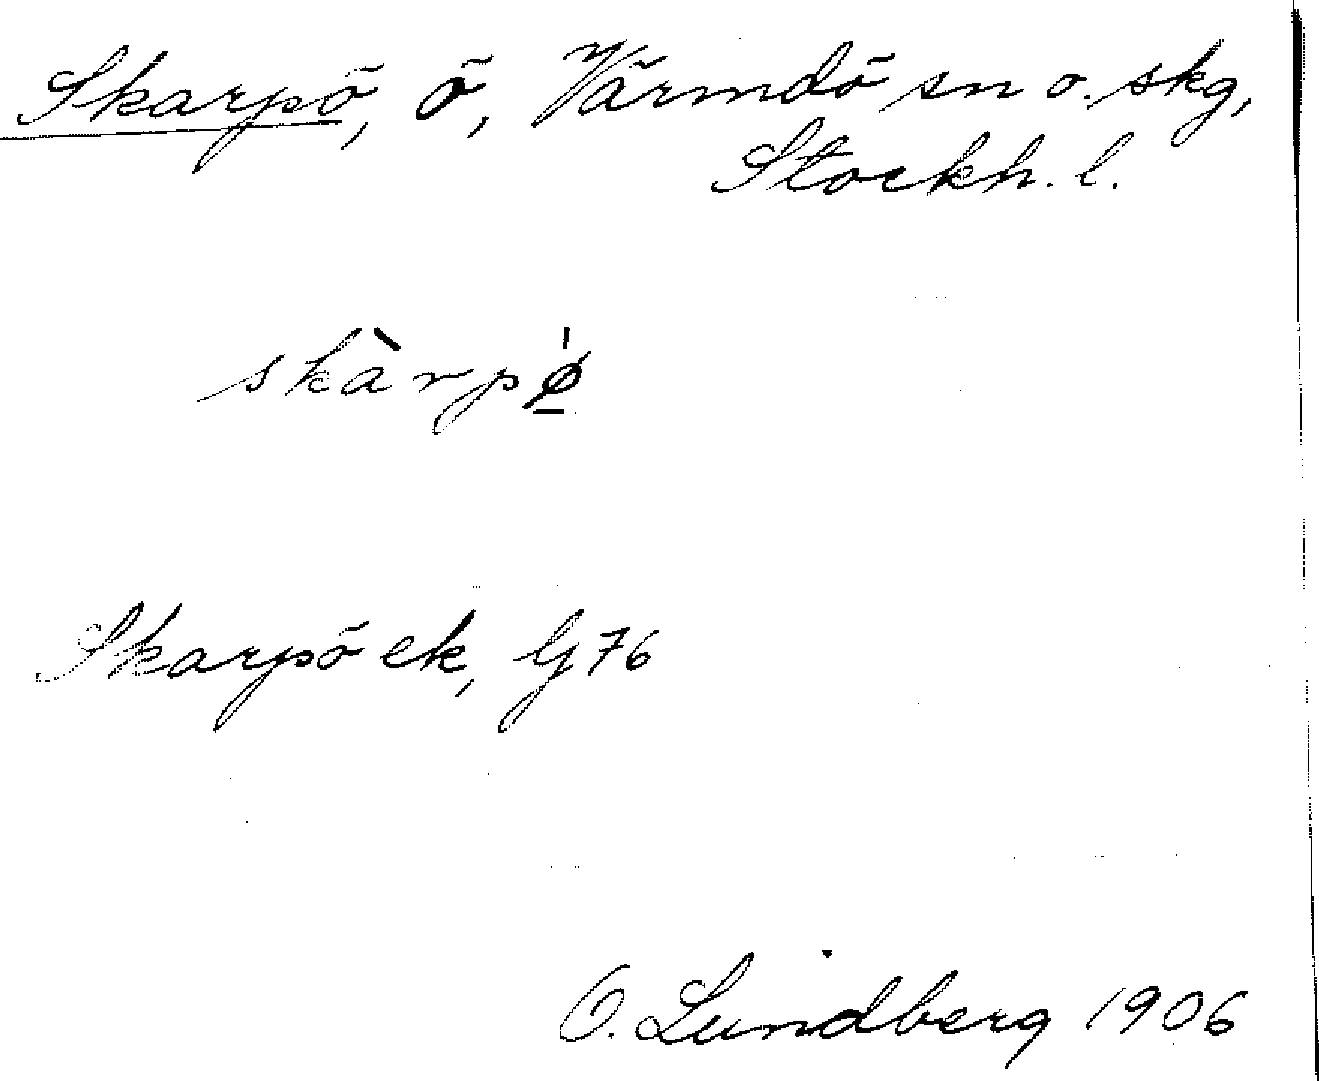 Skarpö, ö, Värmdö sn o. skg,
Stockh. l.
skàrpø̲̍
Skarpö ek, G 76
O. Lundberg 1906